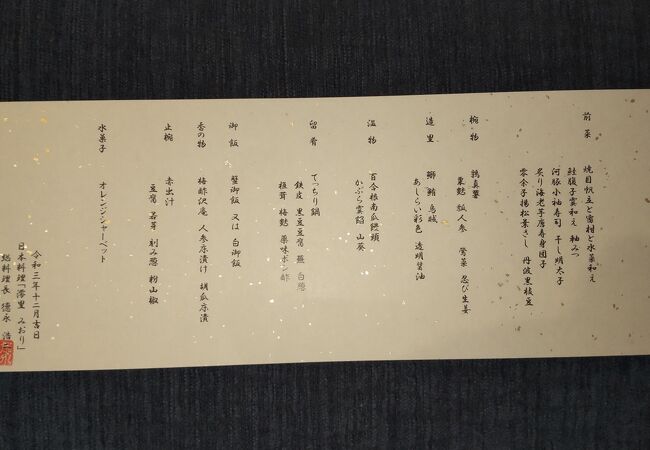 前菜
焼目帆立と蜜柑と水菜和え
鮟鱇子雲和え 柚みつ
河豚小袖寿司 干し明太子
炙り海老芋唐寿身団子
零余子揚松葉さし 丹波黒枝豆
椀物
鶉真薯
粟麩 紅人参 鶯菜 忍び生姜
造里
鰤 鮪 烏城
あしらい彩色 透明醤油
温物
百合根南瓜饅頭
かぶら雲餡 山葵
留肴
てっちり鍋
鉄皮 黒豆豆腐 蕪 白葱
椎茸 梅麩 薬味ポン酢
御飯
蟹御飯 又は 白御飯
香の物
梅酢沢庵 人参床漬け 胡瓜床漬
止椀
赤出汁
豆腐 若芽 刻み葱 粉山椒
水菓子
オレンジシャーベット
令和三年十二月吉日
日本料理「澪里 みおり」
総料理長 德永 浩